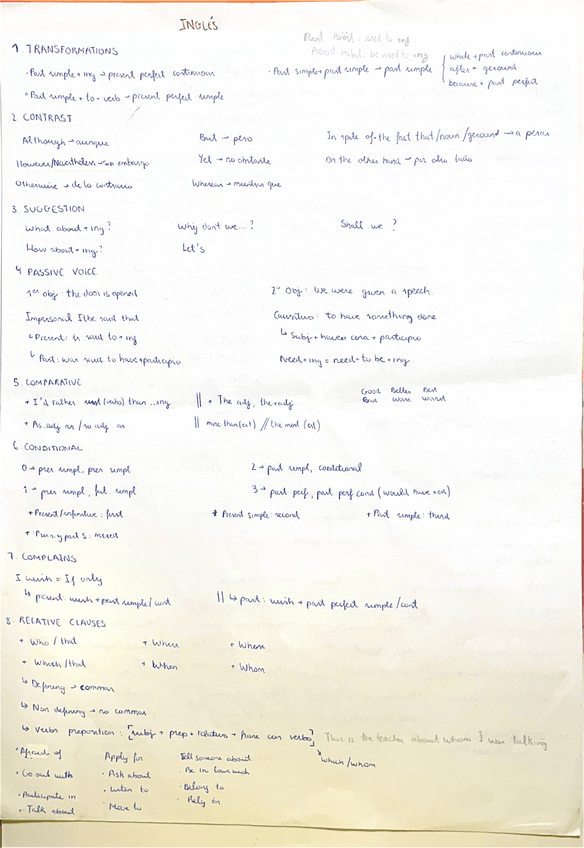 INGLÉS
Past habit: used to
Present habit: be used to + ing
1. TRANSFORMATIONS
· Past simple + ing → present perfect continuous
· Past simple + past simple → past simple
while + past continuous
after + gerund
because + past perfect
· Past simple + to + verb → present perfect simple
2. CONTRAST
Although → aunque
But → pero
In spite of + the fact that/noun/gerund → a pesar
However/Nevertheless → sin embargo
Yet → no obstante
On the other hand → por otro lado
Otherwise → de lo contrario
Whereas → mientras que
3. SUGGESTION
What about + ing?
Why don't we...?
Shall we ?
How about + ing?
Let's
4 PASSIVE VOICE
1er obj: the door is opened
2º Obj: We were given a speech.
Impersonal It be said that
Causitivo: to have something done
↳ Present: is said to + ing
↳ Subj + have + cosa + participio
↳ Past: was said to have + participio
Need + ing = need + to be + ing
5. COMPARATIVE
+ I'd rather (verbo) than ...ing
|| + The adj, the + adj
Good Better Best
Bad Worse Worst
+ As adj as / so adj as
|| more than (er) // the most (est)
6. CONDITIONAL
0 → pres simpl, pres simpl
2 → past simpl, conditional
1 → pres simpl, fut. simpl
3 → past perf, past perf cond (would have + ed)
+ Present/infinitive: first
* Present simple: second
+ Past simple: third
+ Pres. y past s: mixed
7. COMPLAINS
I wish = If only
↳ present: wish + past simple/cont
|| ↳ past: wish + past perfect simple/cont
8. RELATIVE CLAUSES
+ Who / that
+ Where
+ Whose
+ Which / that
+ When
+ Whom
↳ Defining → commas
↳ Non defining → no commas
↳ Verbo preposition: [subj + prep + relativo + frase con verbo]
This is the teacher about whom I was talking
↘ which/whom
· Afraid of
Apply for
Tell someone about
· Go out with
· Ask about
· Be in love with
· Participate in
· Listen to
· Belong to
· Talk about
· Move to
· Rely on